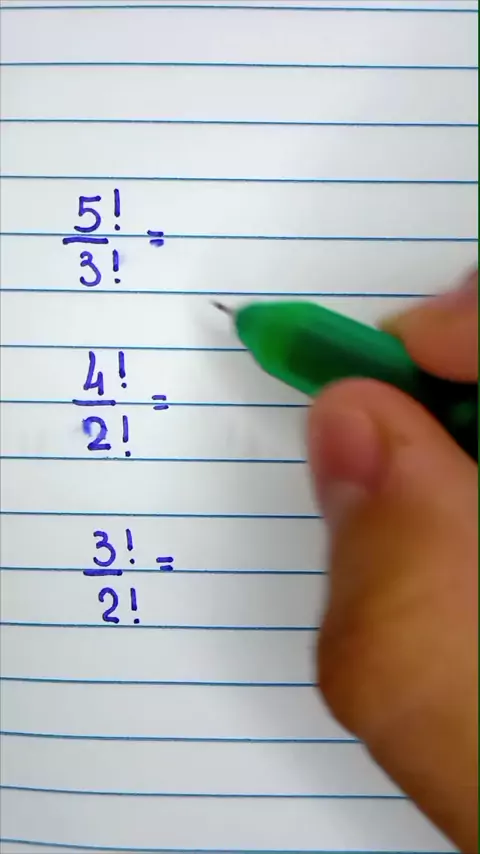 5!/3! =
4!/2! =
3!/2! =